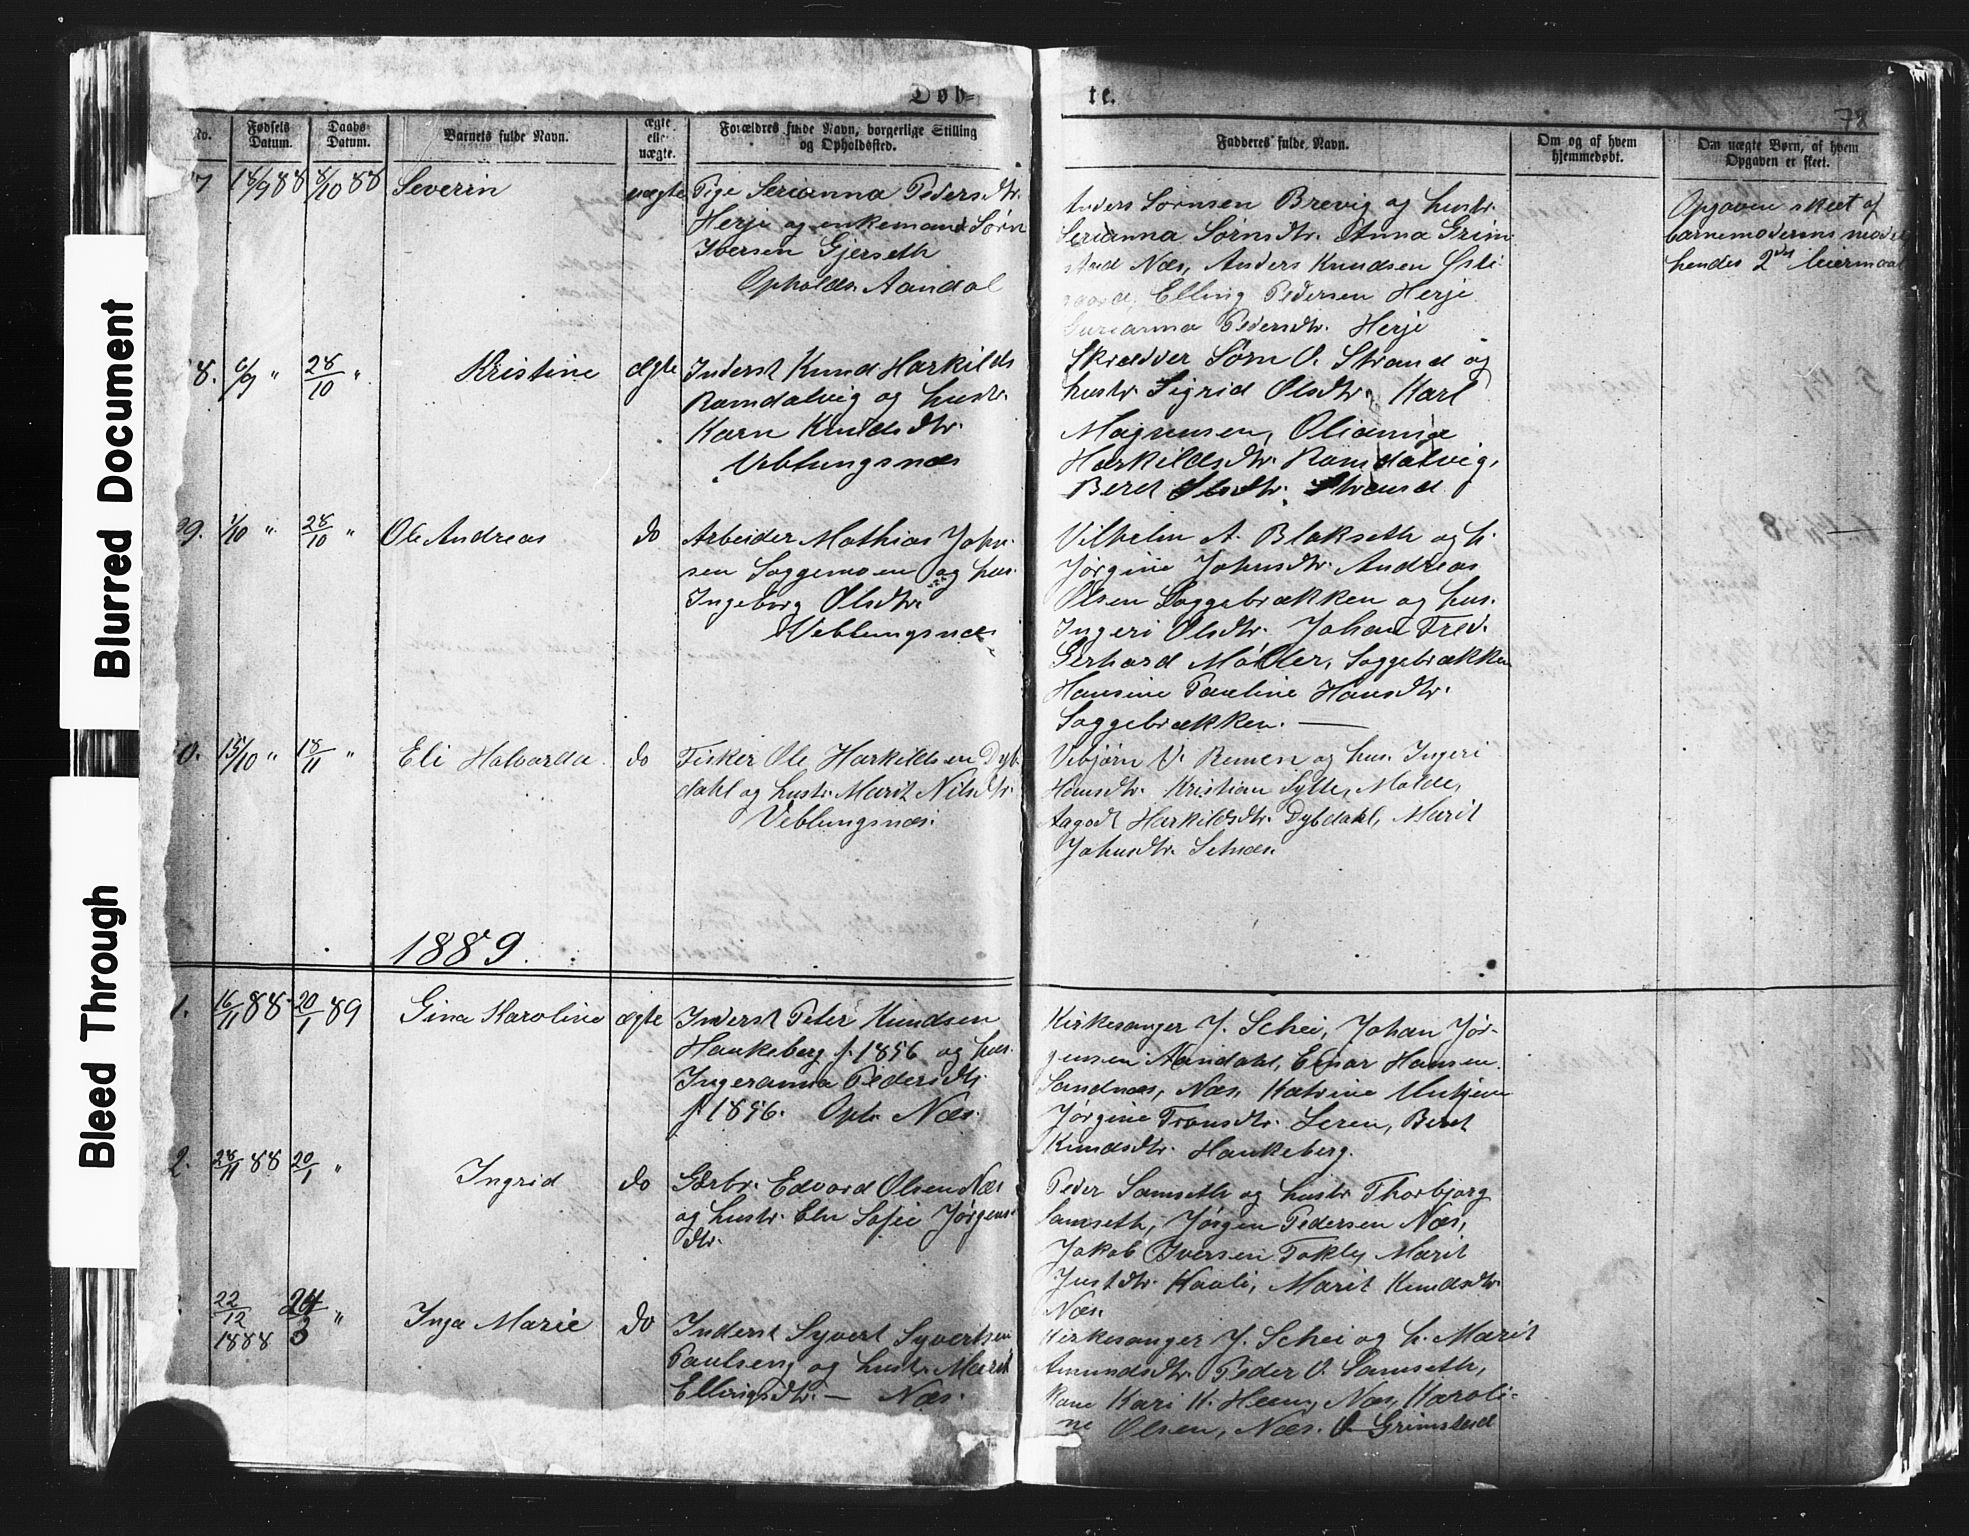 Blurred Document
Bleed Through
Døb-
te.
78
No.
Fødsels Datum.
Daabs Datum.
Barnets fulde Navn.
ægte eller uægte.
Forældres fulde Navn, borgerlige Stilling
og Opholdssted.
Fadderes fulde Navn.
Om og af hvem
hjemmedøbt.
Om uægte Børn, af hvem
Opgaven er skeet.
7 18/9 88 8/10 88 Severin uægte
Pige Serianna Pedersdtr.
Herje og enkemand Sørn
Iversen Gjerseth
Opholds. Aandal
Anders Sørnsen Brevig og hustr.
Serianna Sørnsdtr. Anna Grim
stad Næs, Anders Knudsen
Elling Pedersen Herje
Serianna Pedersdtr. Herje
Opgaven skeet af
barnemoderens moder
hendes 2det leiermaal
8. 6/9 " 28/10 " Kristine ægte
Inderst Knud Harkilds
Romdalvig og hustr.
Karn Knudsdtr.
Veblungsnæs
Skrædder Sørn O. Strand og
hustr Sigrid Olsdtr. Karl
Magnusen, Olianna
Harkildsdtr. Romsdalvig,
Beret Olsdtr. Strand
29. 1/10 " 28/10 " Ole Andreas do
Arbeider Mathias John-
sen Soggemoen og hus.
Ingeborg Olsdtr.
Veblungsnæs
Vilhelm A. Blakseth og h.
Jørgine Johnsdtr. Andreas
Olsen Soggebrækken og hus.
Ingeri Olsdtr. Johan Fred.
Gerhard Møller, Soggebrækken
Hansine Pauline Hansdtr.
Soggebrækken. —
0. 15/10 " 18/11 " Eli Halvarda do
Fisker Ole Harkildsen Dyb
dahl og hustr. Marit Nilsdtr.
Veblungsnæs.
Vebjørn V. Remen og hus. Ingeri
Hansdtr. Kristian Sylte, Molde,
Aagodt Harkildsdtr. Dybdahl, Marit
Johnsdtr. Setnæs.
1889.
1. 16/11 88 20/1 89 Gina Karoline ægte
Inderst Peter Knudsen
Haukeberg f. 1856 og hus.
Ingeranna Pedersdtr.
f. 1856. Oph. Næs.
Kirkesanger J. Schei, Johan Jør-
gensen Aandahl, Einar Hansen
Sandnæs, Næs, Katrine Unhjem
Jørgine Fransdtr. Leren, Beret
Knudsdtr. Haukeberg.
2. 28/11 88 20/1 " Ingrid do
Garbr. Edvard Olsen Næs
og hustr. Eln Sofie Jørgens-
dtr.
Peder Samseth og hustr Thorbjørg
Samseth, Jørgen Pedersen Næs,
Jakob Iversen Tokle, Marit
Justdtr. Kaali, Marit Knudsdtr.
Næs.
22/12 1888 24/3 " Inga Marie do
Inderst Syvert Syvertsen
Paulseng og hustr. Marit
Ellingsdtr. — Næs.
Kirkesanger J. Schei og h. Marit
Amundsdtr. Peder O. Samseth,
Kone Kari K. Hem, Næs, Karoli-
ne Olsen, Næs. O. Grimstad